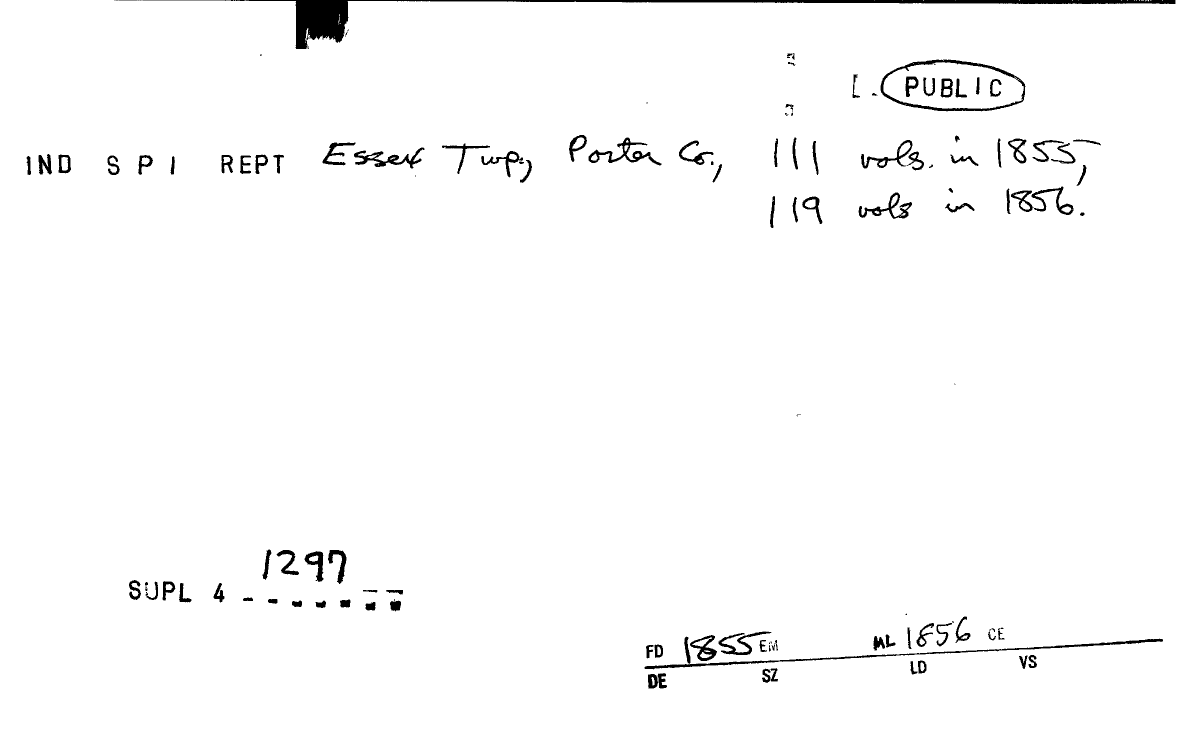 L. PUBLIC
IND S P I REPT Essex Twp., Porter Co., 111 vols. in 1855,
119 vols in 1856.
1297
SUPL 4
FD 1855 EM ML 1856 CE
DE SZ LD VS